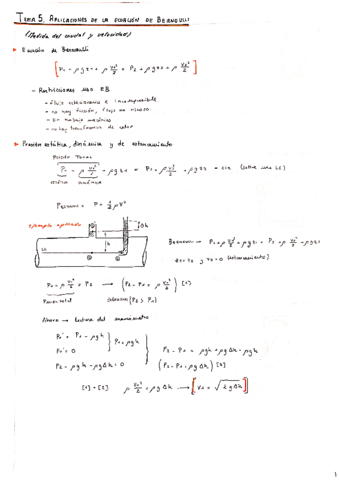 TEMA 5. APLICACIONES DE LA ECUACIÓN DE BERNOULLI
(Medida del caudal y velocidades)
Ecuación de Bernoulli
[P₁ + ρgz₁ + ρ v₁²/2 = P₂ + ρgz₂ + ρ v₂²/2]
- Restricciones uso EB
• flujo estacionario e incompresible
• no hay fricción, flujo no viscoso.
• Sin trabajo mecánico
• no hay transferencia de calor
Presión estática, dinámica y de estancamiento
PRESIÓN TOTAL
P₁ + ρ v₁²/2 + ρgz₁ = P₂ + ρ v₂²/2 + ρgz₂ = cte (sobre una LC)
estática dinámica
P = ½ρV²
Δh
h
BERNOULLI → P₁ + ρ v₁²/2 + ρgz₁ = P₂ + ρ v₂²/2 + ρgz₂
z₁ = z₂ y v₂ = 0 (estancamiento)
P₁ + ρ v₁²/2 = P₂ → (P₂ - P₁ = ρ v₁²/2) [1]
Presión total (P₂ > P₁)
Ahora → lectura del manómetro
P₁' = P₁ - ρgh
P₁' = 0
P₁ = ρgh
P₂ - ρgh - ρgΔh = 0
P₂ - P₁ = ρgh + ρgΔh - ρgh
(P₂ - P₁ = ρgΔh) [2]
[1] = [2] ρ v₁²/2 = ρgΔh → [v₁ = √2gΔh]
1